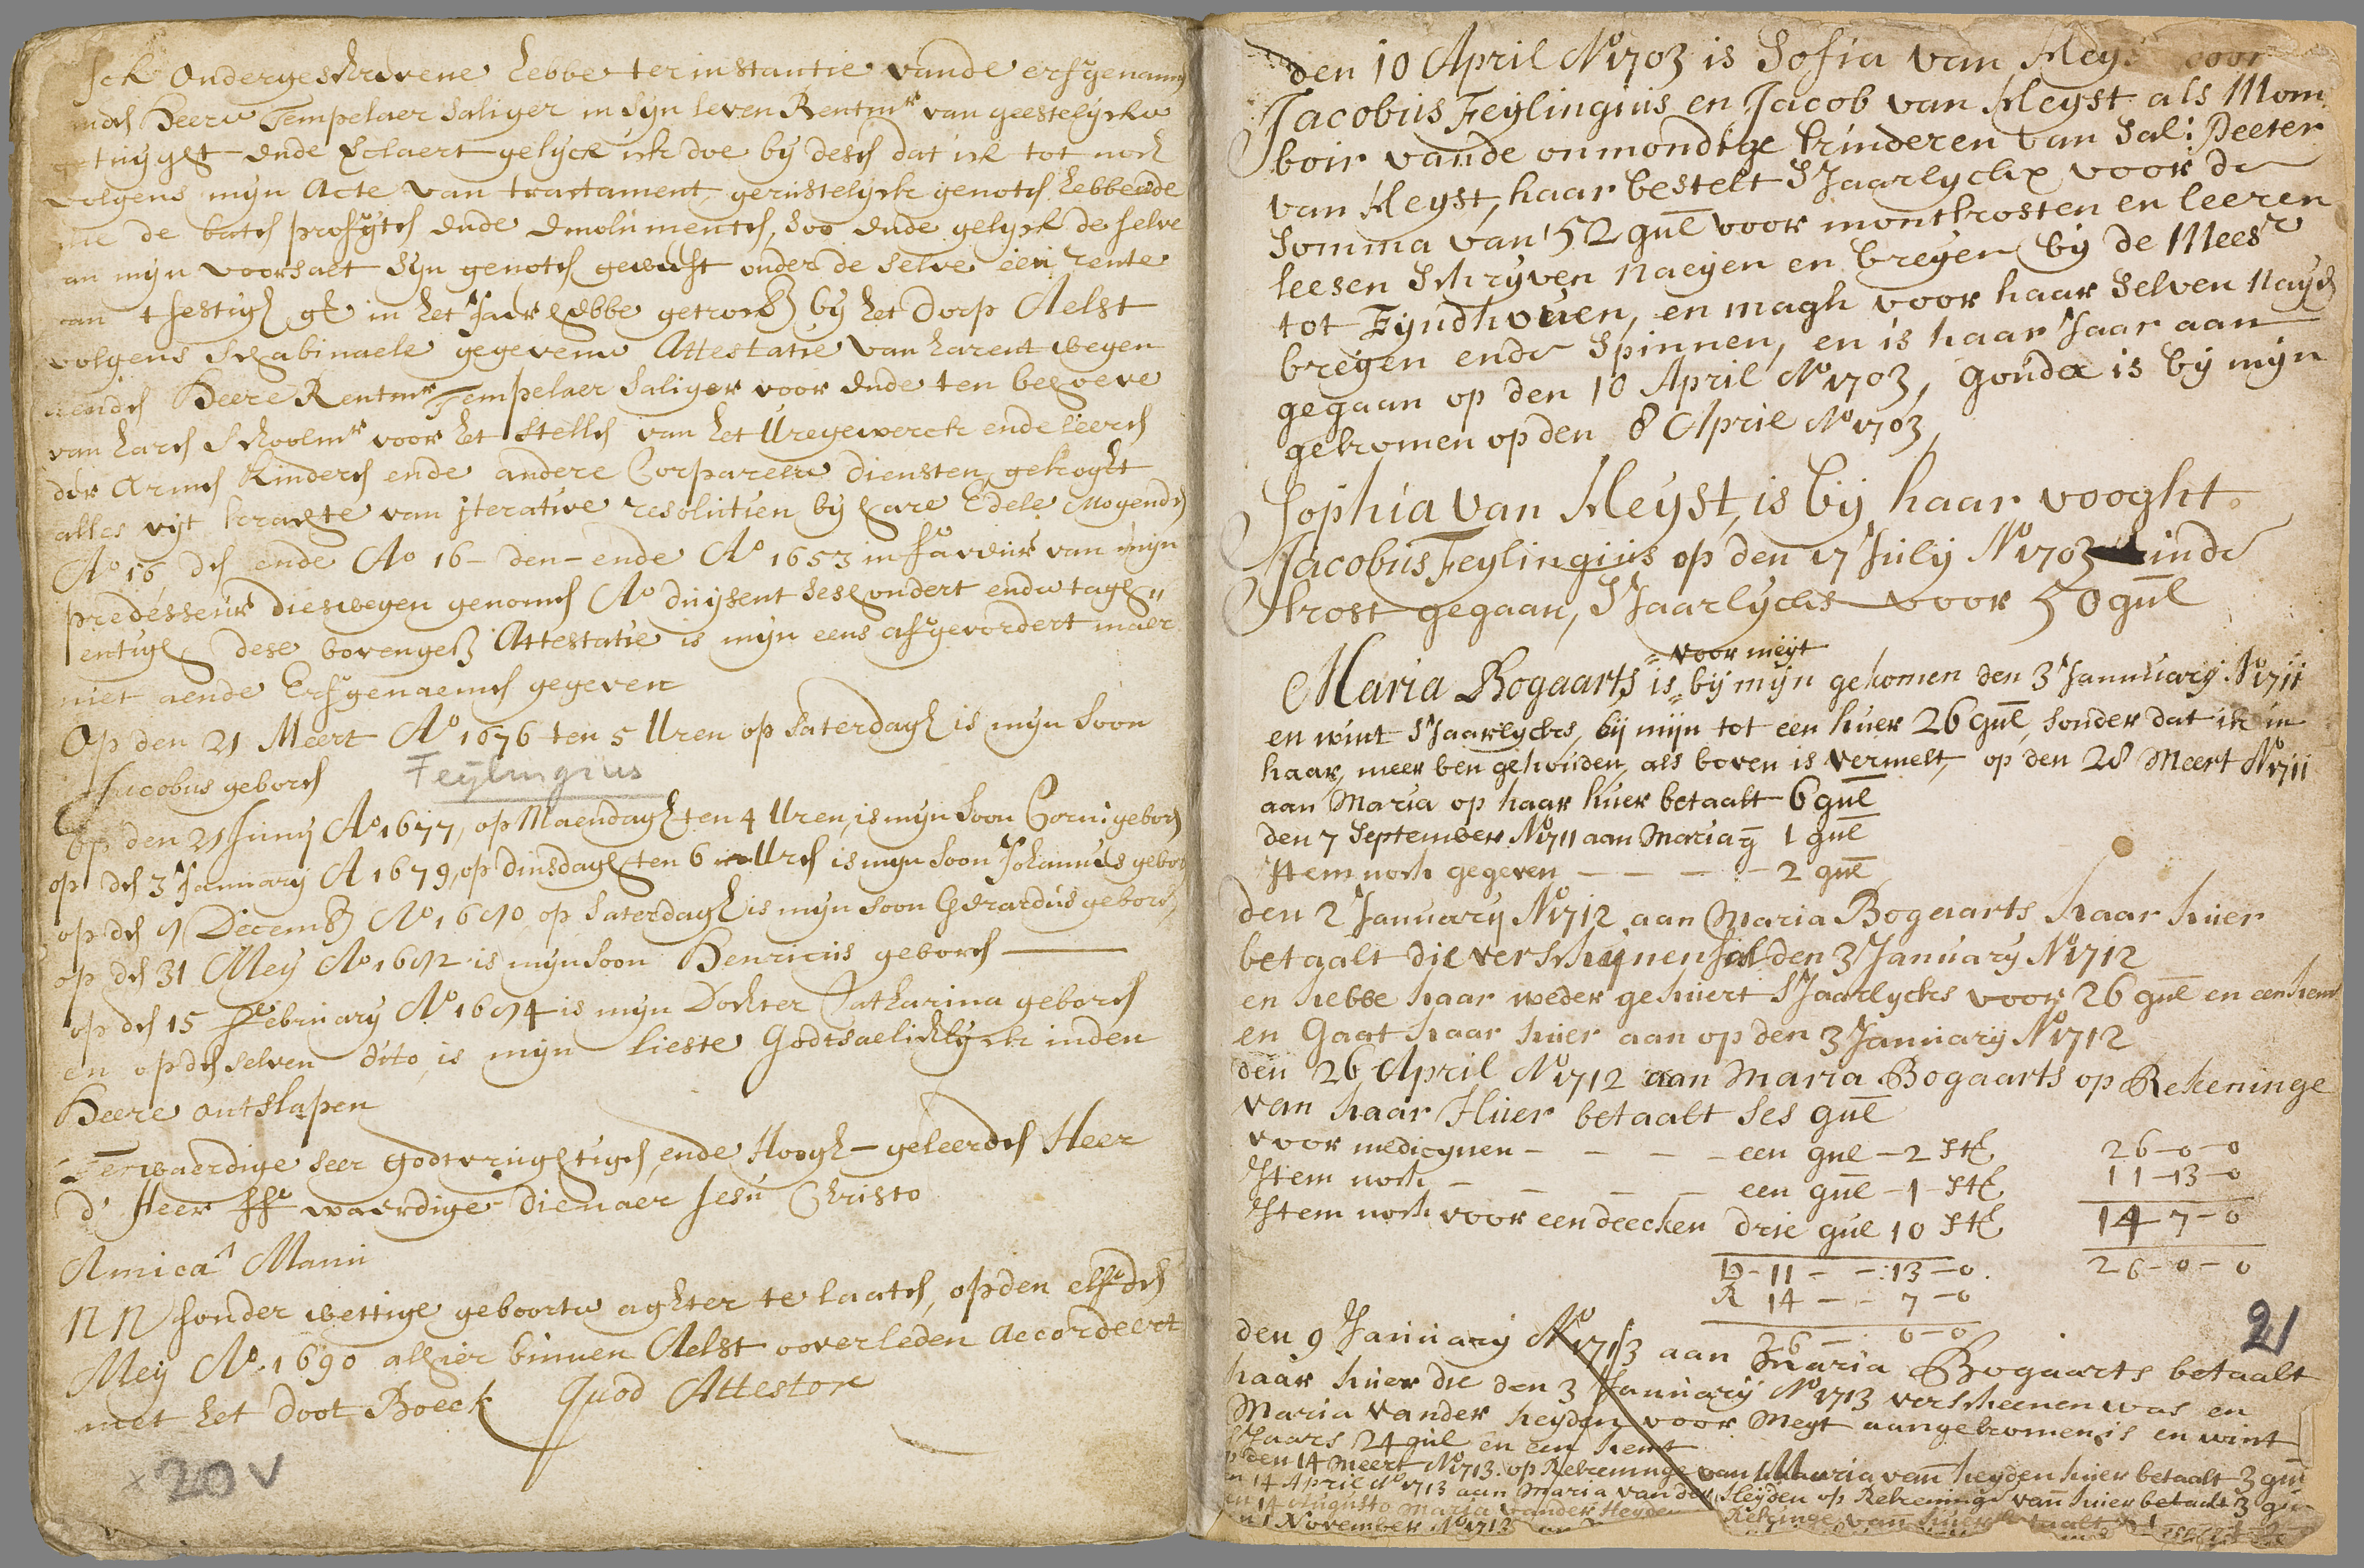 Ick Ondergeschrevene hebbe ter instantie vande erfgenaamen
Heere Tempelaer Saliger in syn leven Rentmr van geestelycke
getuyght ende verclaert gelyck ick doe by desen dat ick tot noch
volgens myn Acte van tractament, gerustelyck genoten hebbende
de baten profyten ende Emolumenten, soo ende gelyck de selve
an myn voorsaet syn genoten geweest onder de selve een rente
van tsestigh gl in het Jaer hebbe getrocken by het dorp Aelst
volgens Schabinaele gegevene Attestatie van harent wegen
Heere Rentmr Tempelaer Saliger voor ende ten behoeve
van haren Schoolmr voor het stellen van het Uregewerck ende leeren
der Armen Kinderen ende andere Corpareele diensten, gekoght
alles uyt krachte van iterative resolutien by hare Edele Mogenden
Ao 16 den ende Ao 16 - den - ende Ao 1653 in faveur van myn
predesseur dieswegen genomen Ao duysent seshondert ende tagh"
entigh dese bovengess Attestatie is myn eens afgevordert maer
niet aende Erfgenaemen gegeven
Op den 21 Meert Ao 1676 ten 5 Uren op Saterdagh is myn Soon
Jacobus geboren Feylingius
Op den 21 Juny Ao 1677, op Maendagh ten 4 Uren, is myn Soon Corn: geboren
op den 3 January A 1679, op dinsdagh ten 6 Uren is myn Soon Johannes geboren
op den 9 Decemb Ao 1690 op Saterdagh is myn Soon Gerardus geboren,
op den 31 Mey Ao 1692 is myn Soon Henricus geboren
op den 15 February Ao 1694 is myn Dochter Catharina geboren
en op den selven dito is myn lieste Godtsaelichlyck inden
Heere ontslapen
Eerwaerdige seer godtvrughtigen ende Hoogh-geleerden Heer
d' Heer waerdige Dienaer Jesu Christo
Amica Manu
NN sonder wettige geboorte aghter te laaten, op den elfden
Mey Ao 1690 alhier binnen Aelst overleden Accordeert
met het doot Boeck Quod Attestor
x 20 v
den 10 April Ao 1703 is Sofia van Heys door
Jacobus Feylingius en Jacob van Heyst als Mom
boir vande onmondige kinderen van Sal: Peeter
van Heyst, haar bestelt SJaarlyckx voor de
Somma van 52 gul voor montkosten en leeren
leesen Schryven naeyen en breyen by de Meesr
tot Eyndhoven, en magh voor haar Selven nayen
breyen ende Spinnen, en is haar Jaar aan
gegaan op den 10 April Ao 1703, gonde is by myn
gekomen op den 8 April Ao 1703,
Sophia van Heyst, is by haar vooght
Jacobus Feylingius op den 17 July Ao 1703 inde
kost gegaan, SJaarlycks voor 50 gul
= voor meyt
Maria Bogaarts is = by myn gekomen den 3 January Ao 1711
en wint SJaarlycks, by myn tot een huer 26 gul, sonder dat ick in
haar, meer ben gehouden, als boven is vermelt, op den 28 Meert Ao 1711
aan Maria op haar huer betaalt 6 gul
den 7 September Ao 1711 aan Maria g 1 gul
Item noch gegeven - - - - 2 gul
den 2 January Ao 1712 aan Maria Bogaarts haar huer
betaalt die verschynen sal den 3 January Ao 1712
en hebbe haar weder gehuert SJaarlycks voor 26 gul en een hemt
en Gaat haar huer aan op den 3 January Ao 1712
den 26 April Ao 1712 aan Maria Bogaarts op Rekeninge
van haar Huer betaalt ses gul
voor medicynen - - - - een gul - 2 st 26-0-0
Item noch - - - - een gul - 1 - st 11-13-0
Item noch voor een deecken drie gul 10 st 14-7-0
D-11 - - 13-0. 26-0-0
R 14 - - 7-0
26 - 0-0
21
den 9 January Ao 1713 aan Maria Bogaarts betaalt
haar huer die den 3 January Ao 1713 verscheenen was en
Maria vander heyden voor Meyt aangekomen is en wint
SJaars 24 gul en een hemt
op den 14 Meert Ao 1713. op Rekeninge van Maria van heyden huer betaalt 3 gul
en 14 April Ao 1713 aan Maria vander Heyden op Rekeninge van huer betaalt 3 gu
en 14 Augusto Maria vander Heyden Rekeninge van huer betaalt
n 1 November Ao 1713